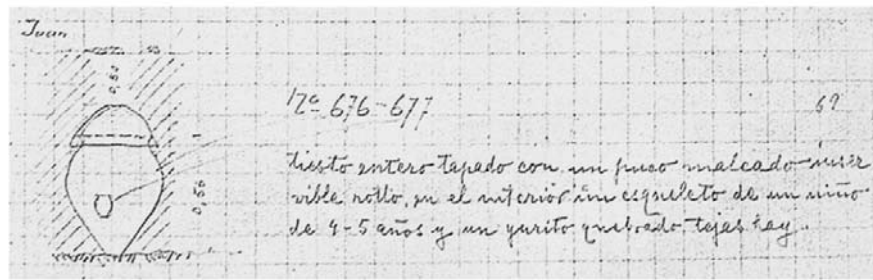 Juan
0,52
Nº 676-677
69
tiesto entero tapado con un puco malcado inser
vible rollo, en el interior un esqueleto de un niño
0,56
de 4-5 años y un yurito quebrado tejas hay.